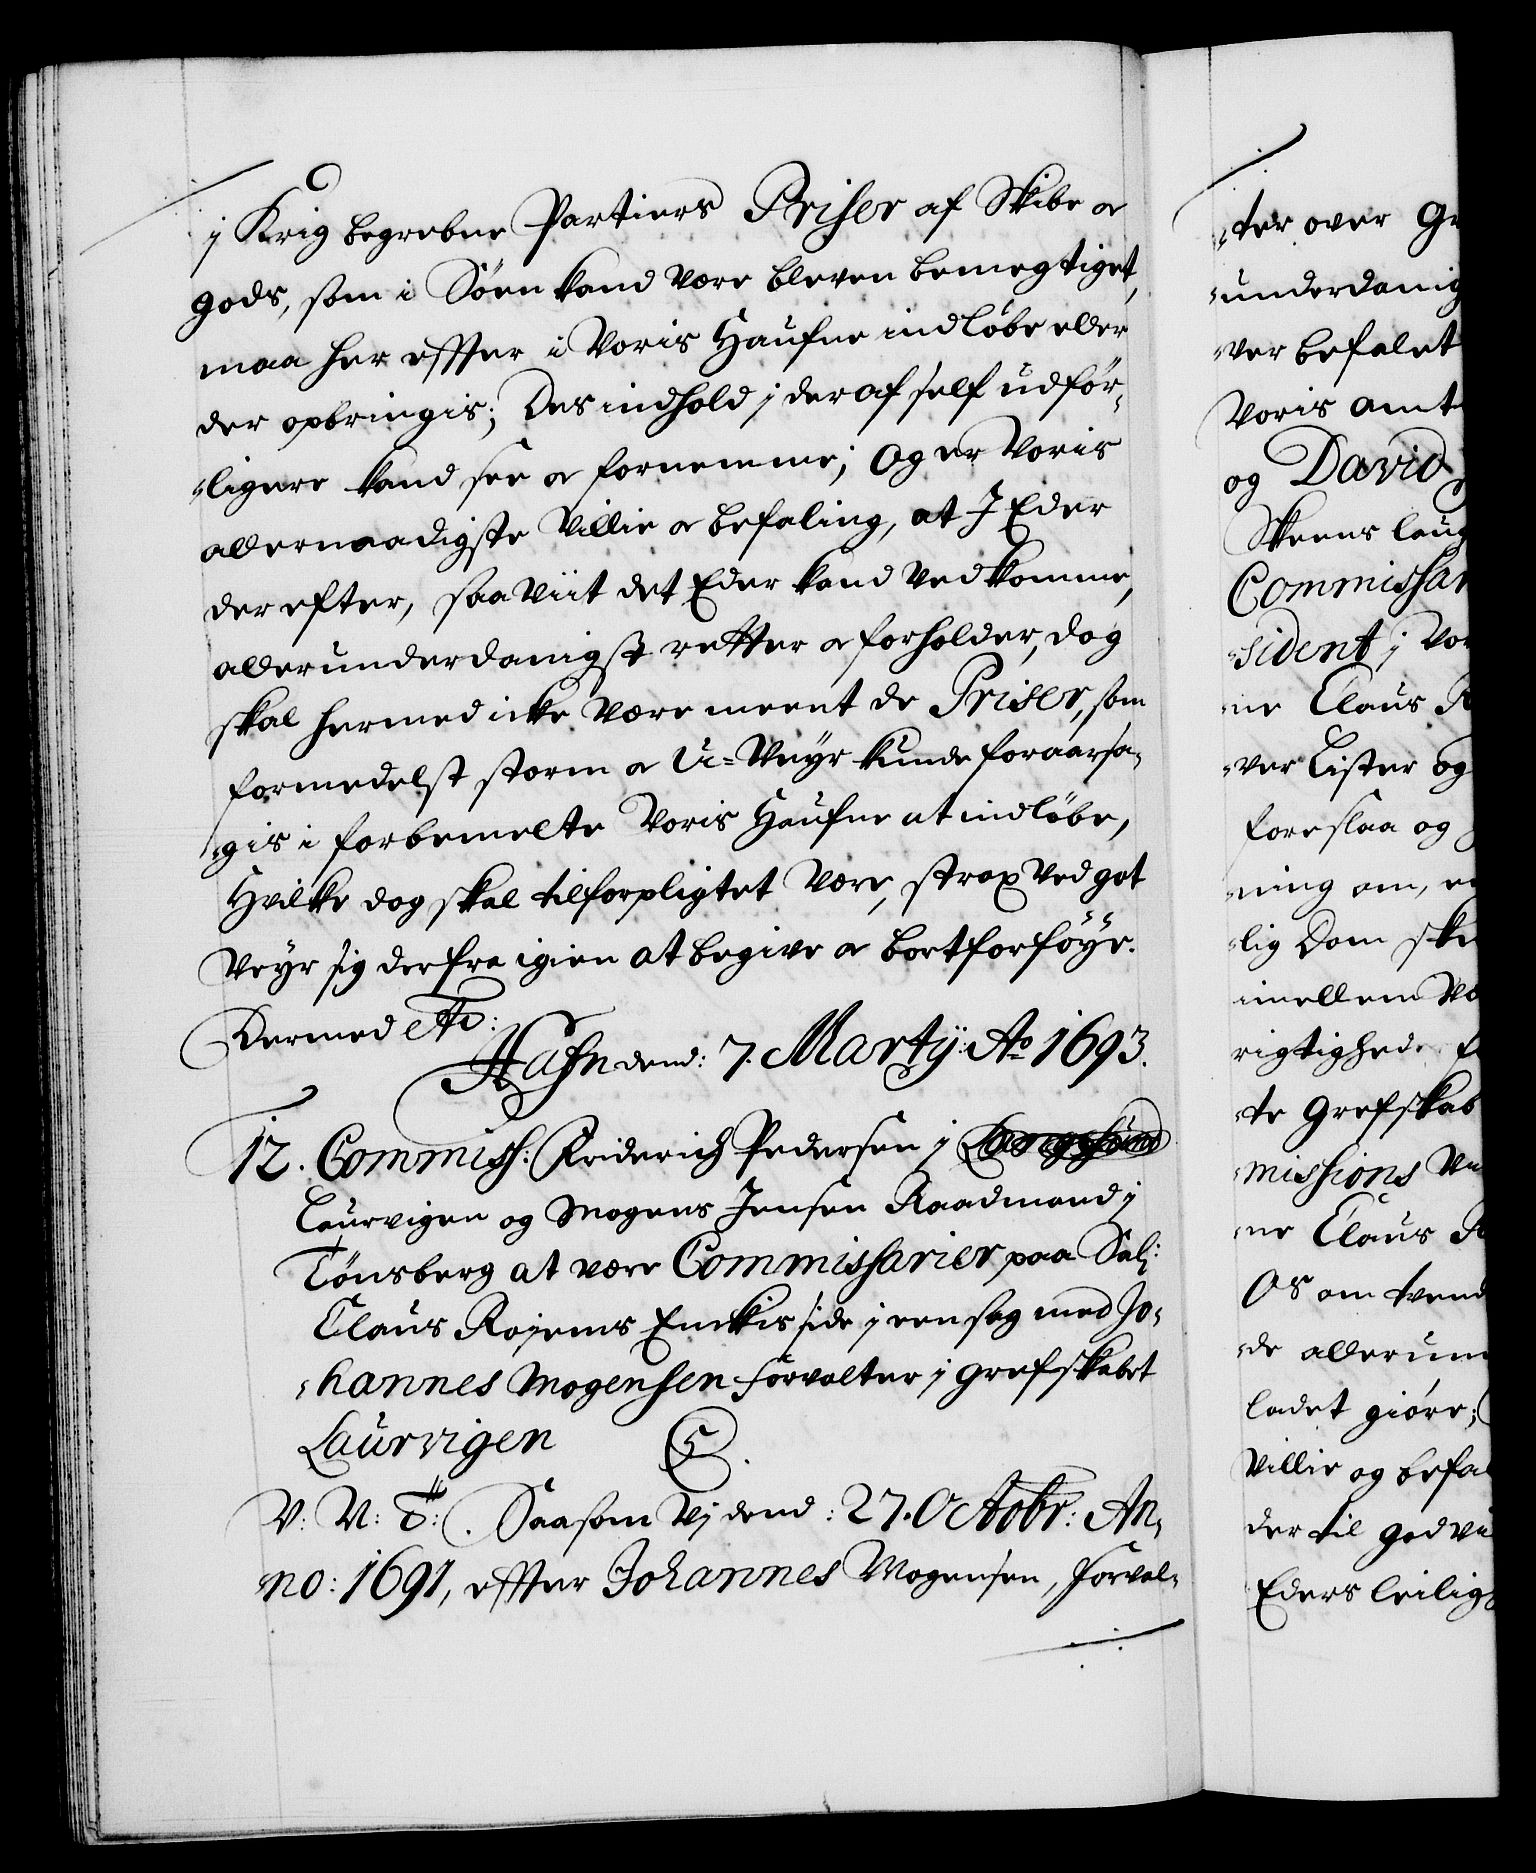 j Krig begrebne Partiers Priser af Skibe oc
gods, som i Söen kand være bleven bemegtiget,
maa her effter i Voris Haufne indløbe eller
der opbringis; Des indhold j der af self udför-
ligere kand see oc fornemme; Og er Voris
allernaadigste Villie oc befaling, at I Eder
der efter, saa viit det Eder kand vedkomme,
allerunderdanigst retter oc forholder, dog
skal hermed icke være meent de Priser, som
formedelst storm oc U-Veyr kunde foraarsa-
gis i forbemelte Voris Haufne at indløbe,
Hvilke dog skal tilforpligtet være, strax ved got
Veyr sig derfra igien at begive oc bortforföye.
Dermed etc:
Hafn dend: 7. Martij: Ao 1693.
12. Commiss: Friderich Pedersen j Langesund
Laurvigen og Mogens Jensen Raadmand j
Tönsberg at være Commissarier paa Sal:
Claus Røyems Enckis side j een sag med Jo-
hannes Mogensen forvalter j grefskabet
Laurvigen
V: V: T: Saasom Vj dend: 27. Octobr: An-
no: 1691, effter Johannes Mogensen, forval-
ter over Gr
underdanig
ver befalet
Voris amt
og David
Skeens laug
Commissar
sident j Vor
ne Claus R
ver Lister og
foreslaa og
ning om, en
lig Dom ske
imellem Vo
rigtighed
te Grefskab
missions Ve
ne Claus R
Os om tvend
de allerun
ladet giöre;
Villie og befal
der til god vi
Eders leilig